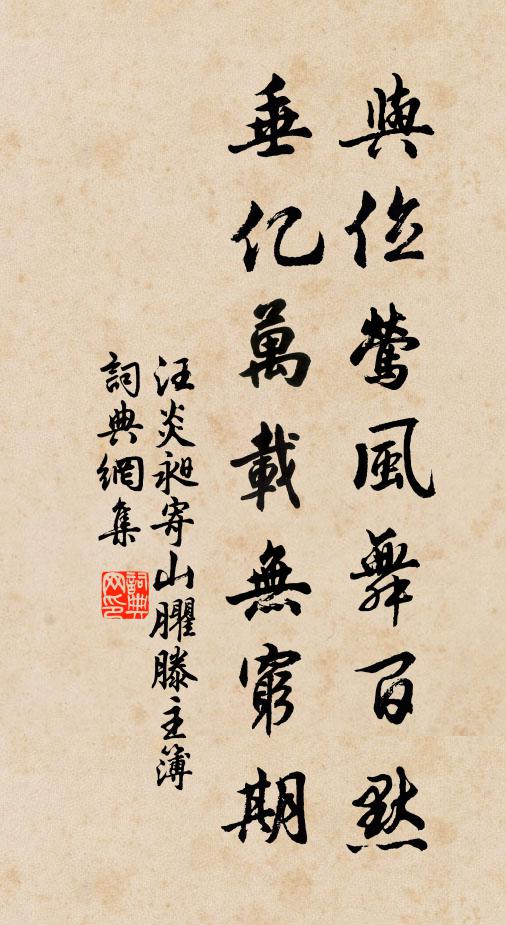 與俭鶯風舞百默
垂亿萬載無窮期
汪炎昶寄山臞滕主簿
詞典網集
詞典网印